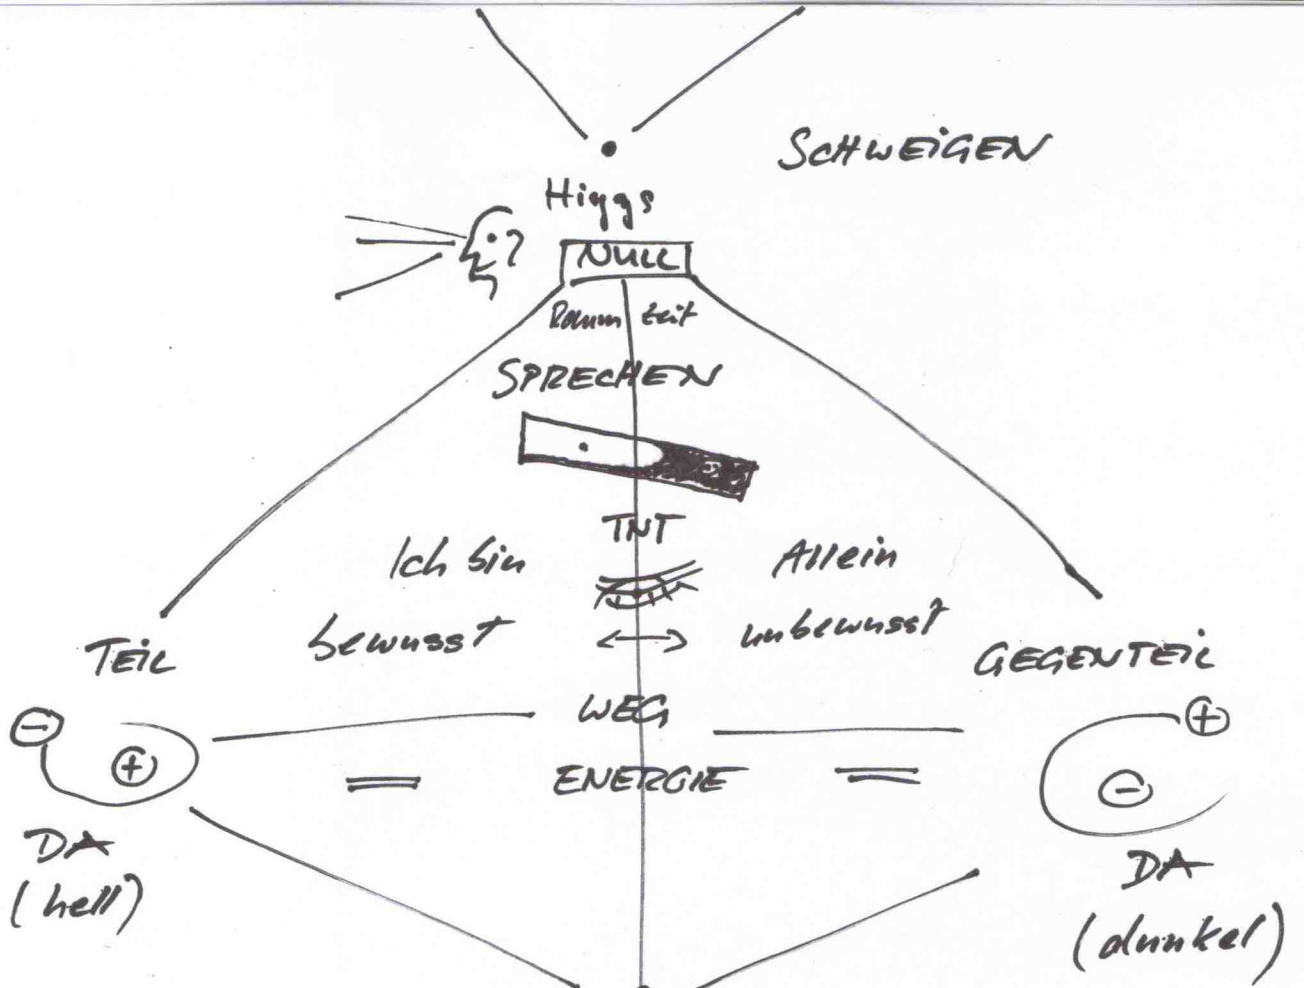 SCHWEIGEN
Higgs
NULL
Raum Zeit
SPRECHEN
TNT
Ich bin Allein
bewusst unbewusst
TEIL GEGENTEIL
WEG
- + + -
= ENERGIE =
DA DA
(hell) (dunkel)